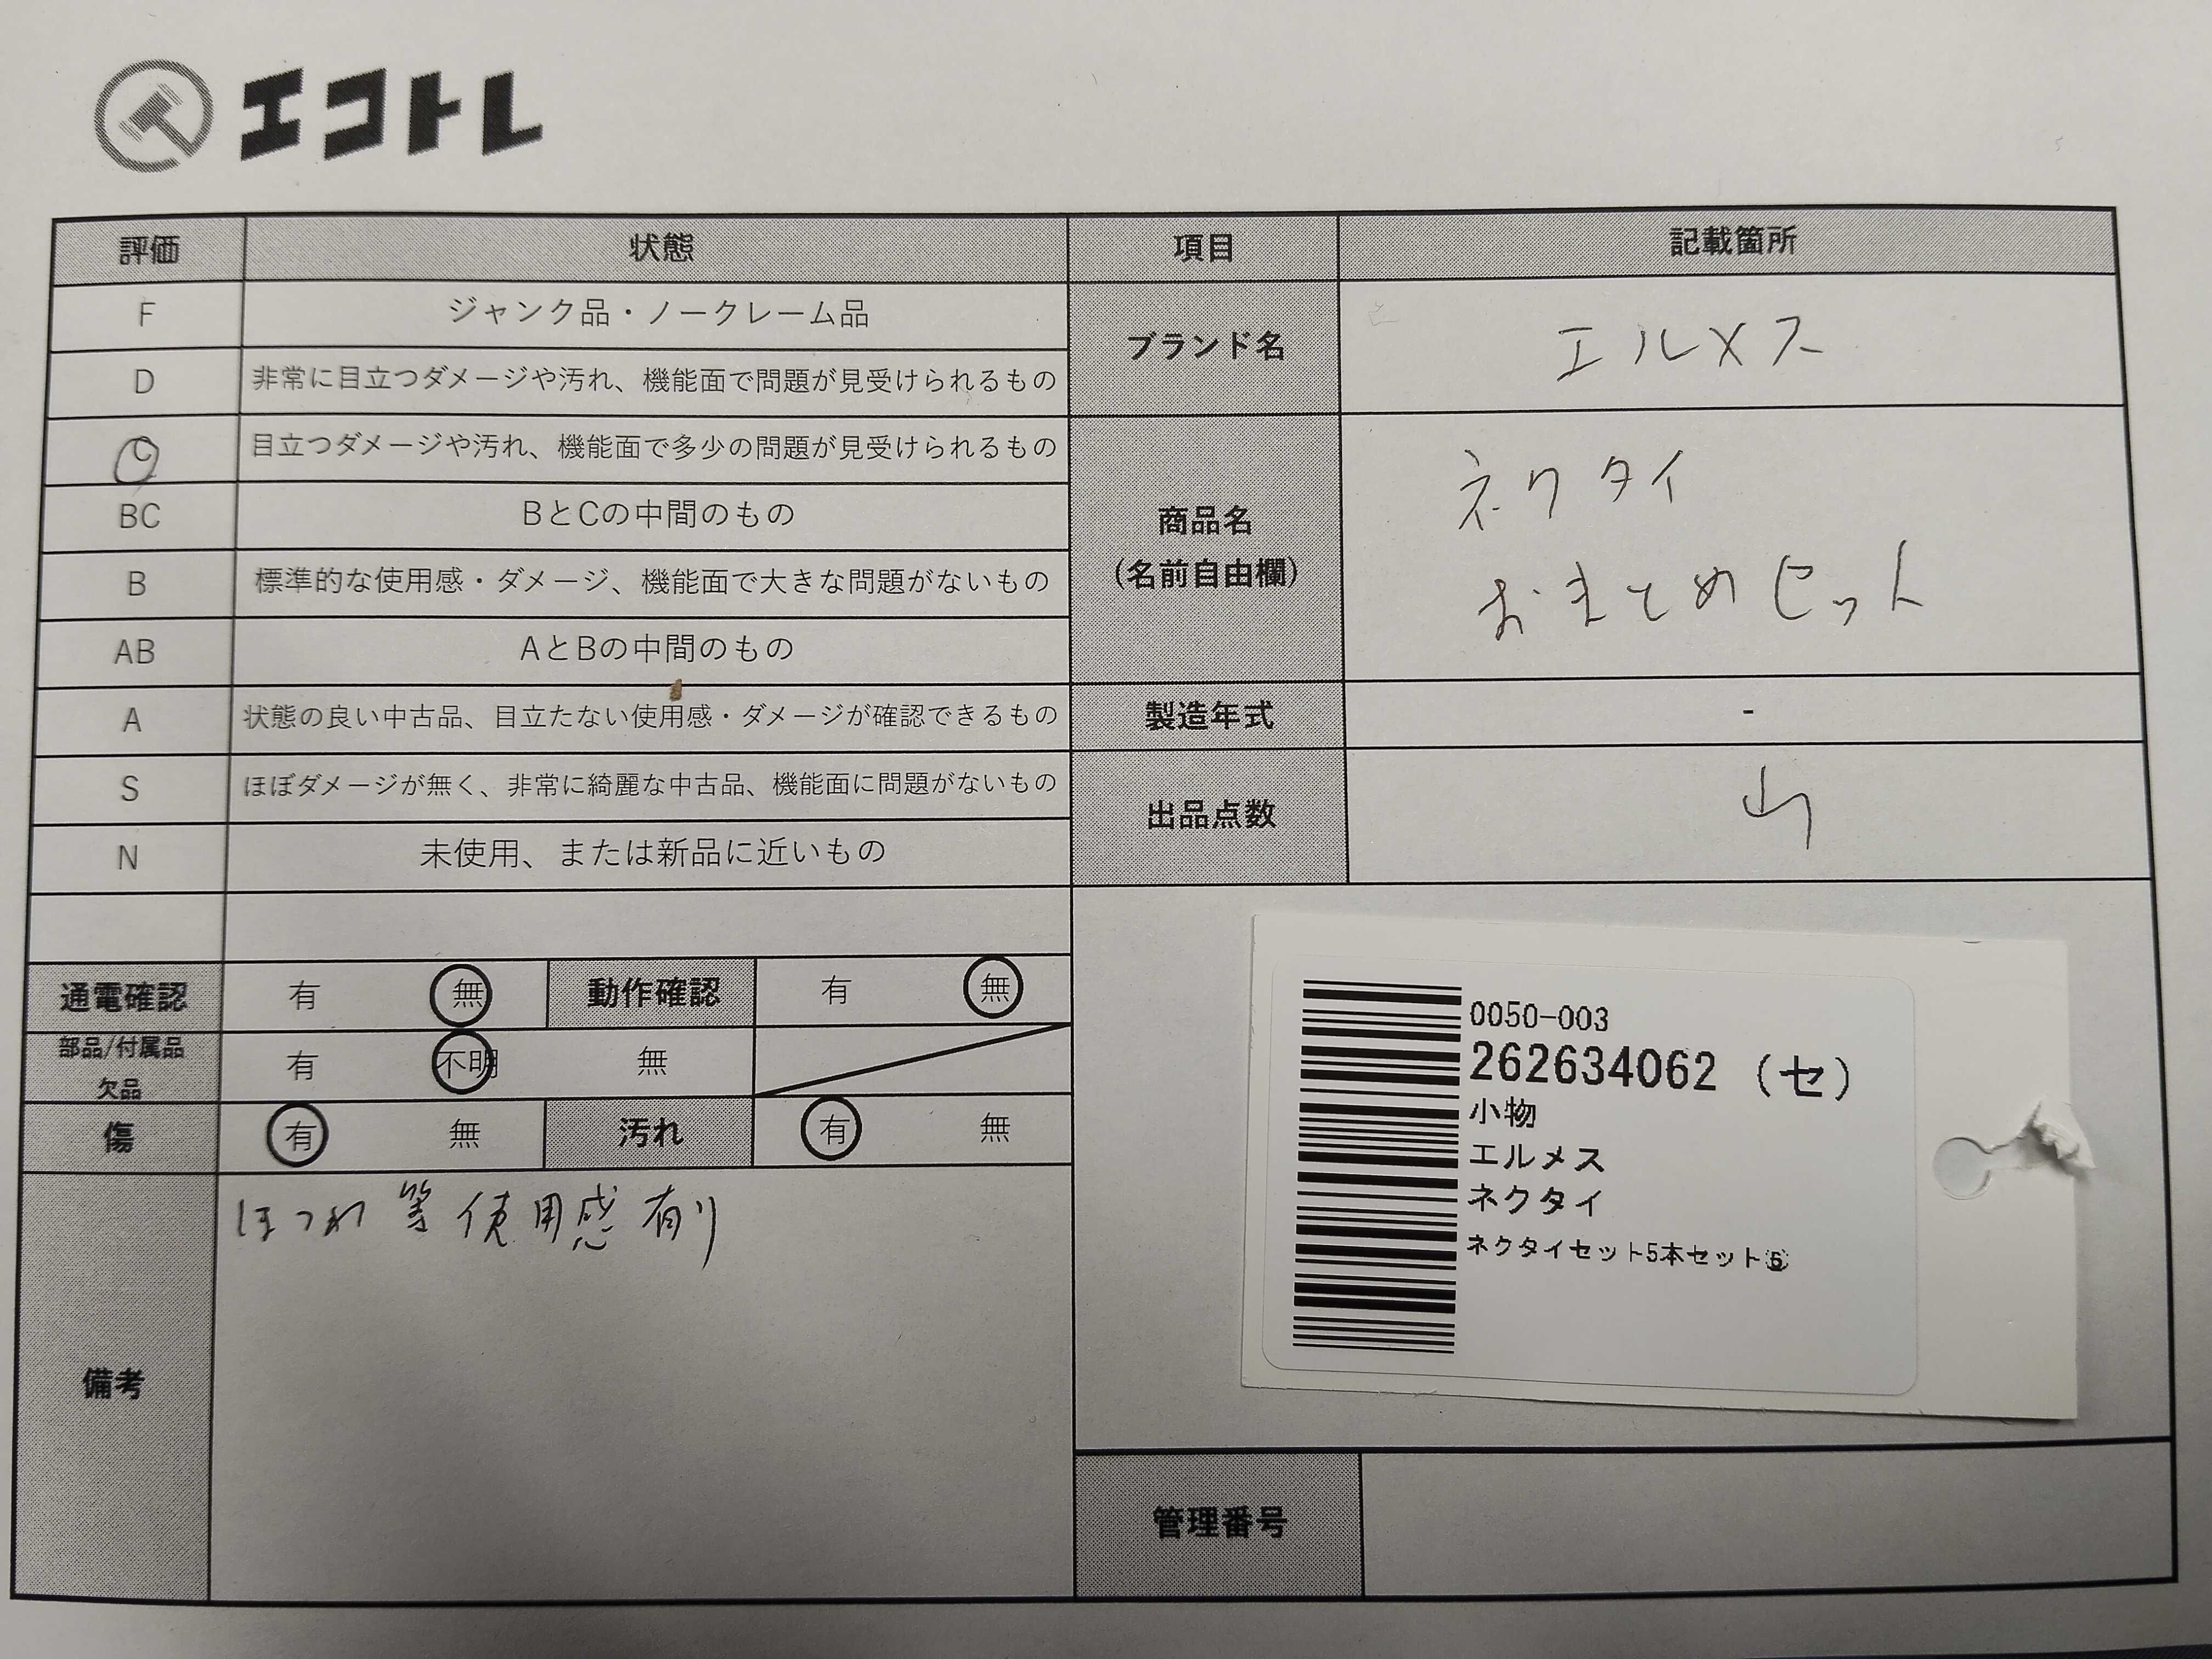 エコトレ
評価 状態 項目 記載箇所
F ジャンク品・ノークレーム品
D 非常に目立つダメージや汚れ、機能面で問題が見受けられるもの
C 目立つダメージや汚れ、機能面で多少の問題が見受けられるもの
BC BとCの中間のもの
B 標準的な使用感・ダメージ、機能面で大きな問題がないもの
AB AとBの中間のもの
A 状態の良い中古品、目立たない使用感・ダメージが確認できるもの
S ほぼダメージが無く、非常に綺麗な中古品、機能面に問題がないもの
N 未使用、または新品に近いもの
ブランド名 エルメス
商品名
(名前自由欄)
ネクタイ
おまとめセット
製造年式 -
出品点数
通電確認 有 無 動作確認 有 無
部品/付属品
欠品
有 不明 無
傷 有 無 汚れ 有 無
備考
ほつれ等使用感有り
0050-003
262634062 (セ)
小物
エルメス
ネクタイ
ネクタイセット5本セット
管理番号